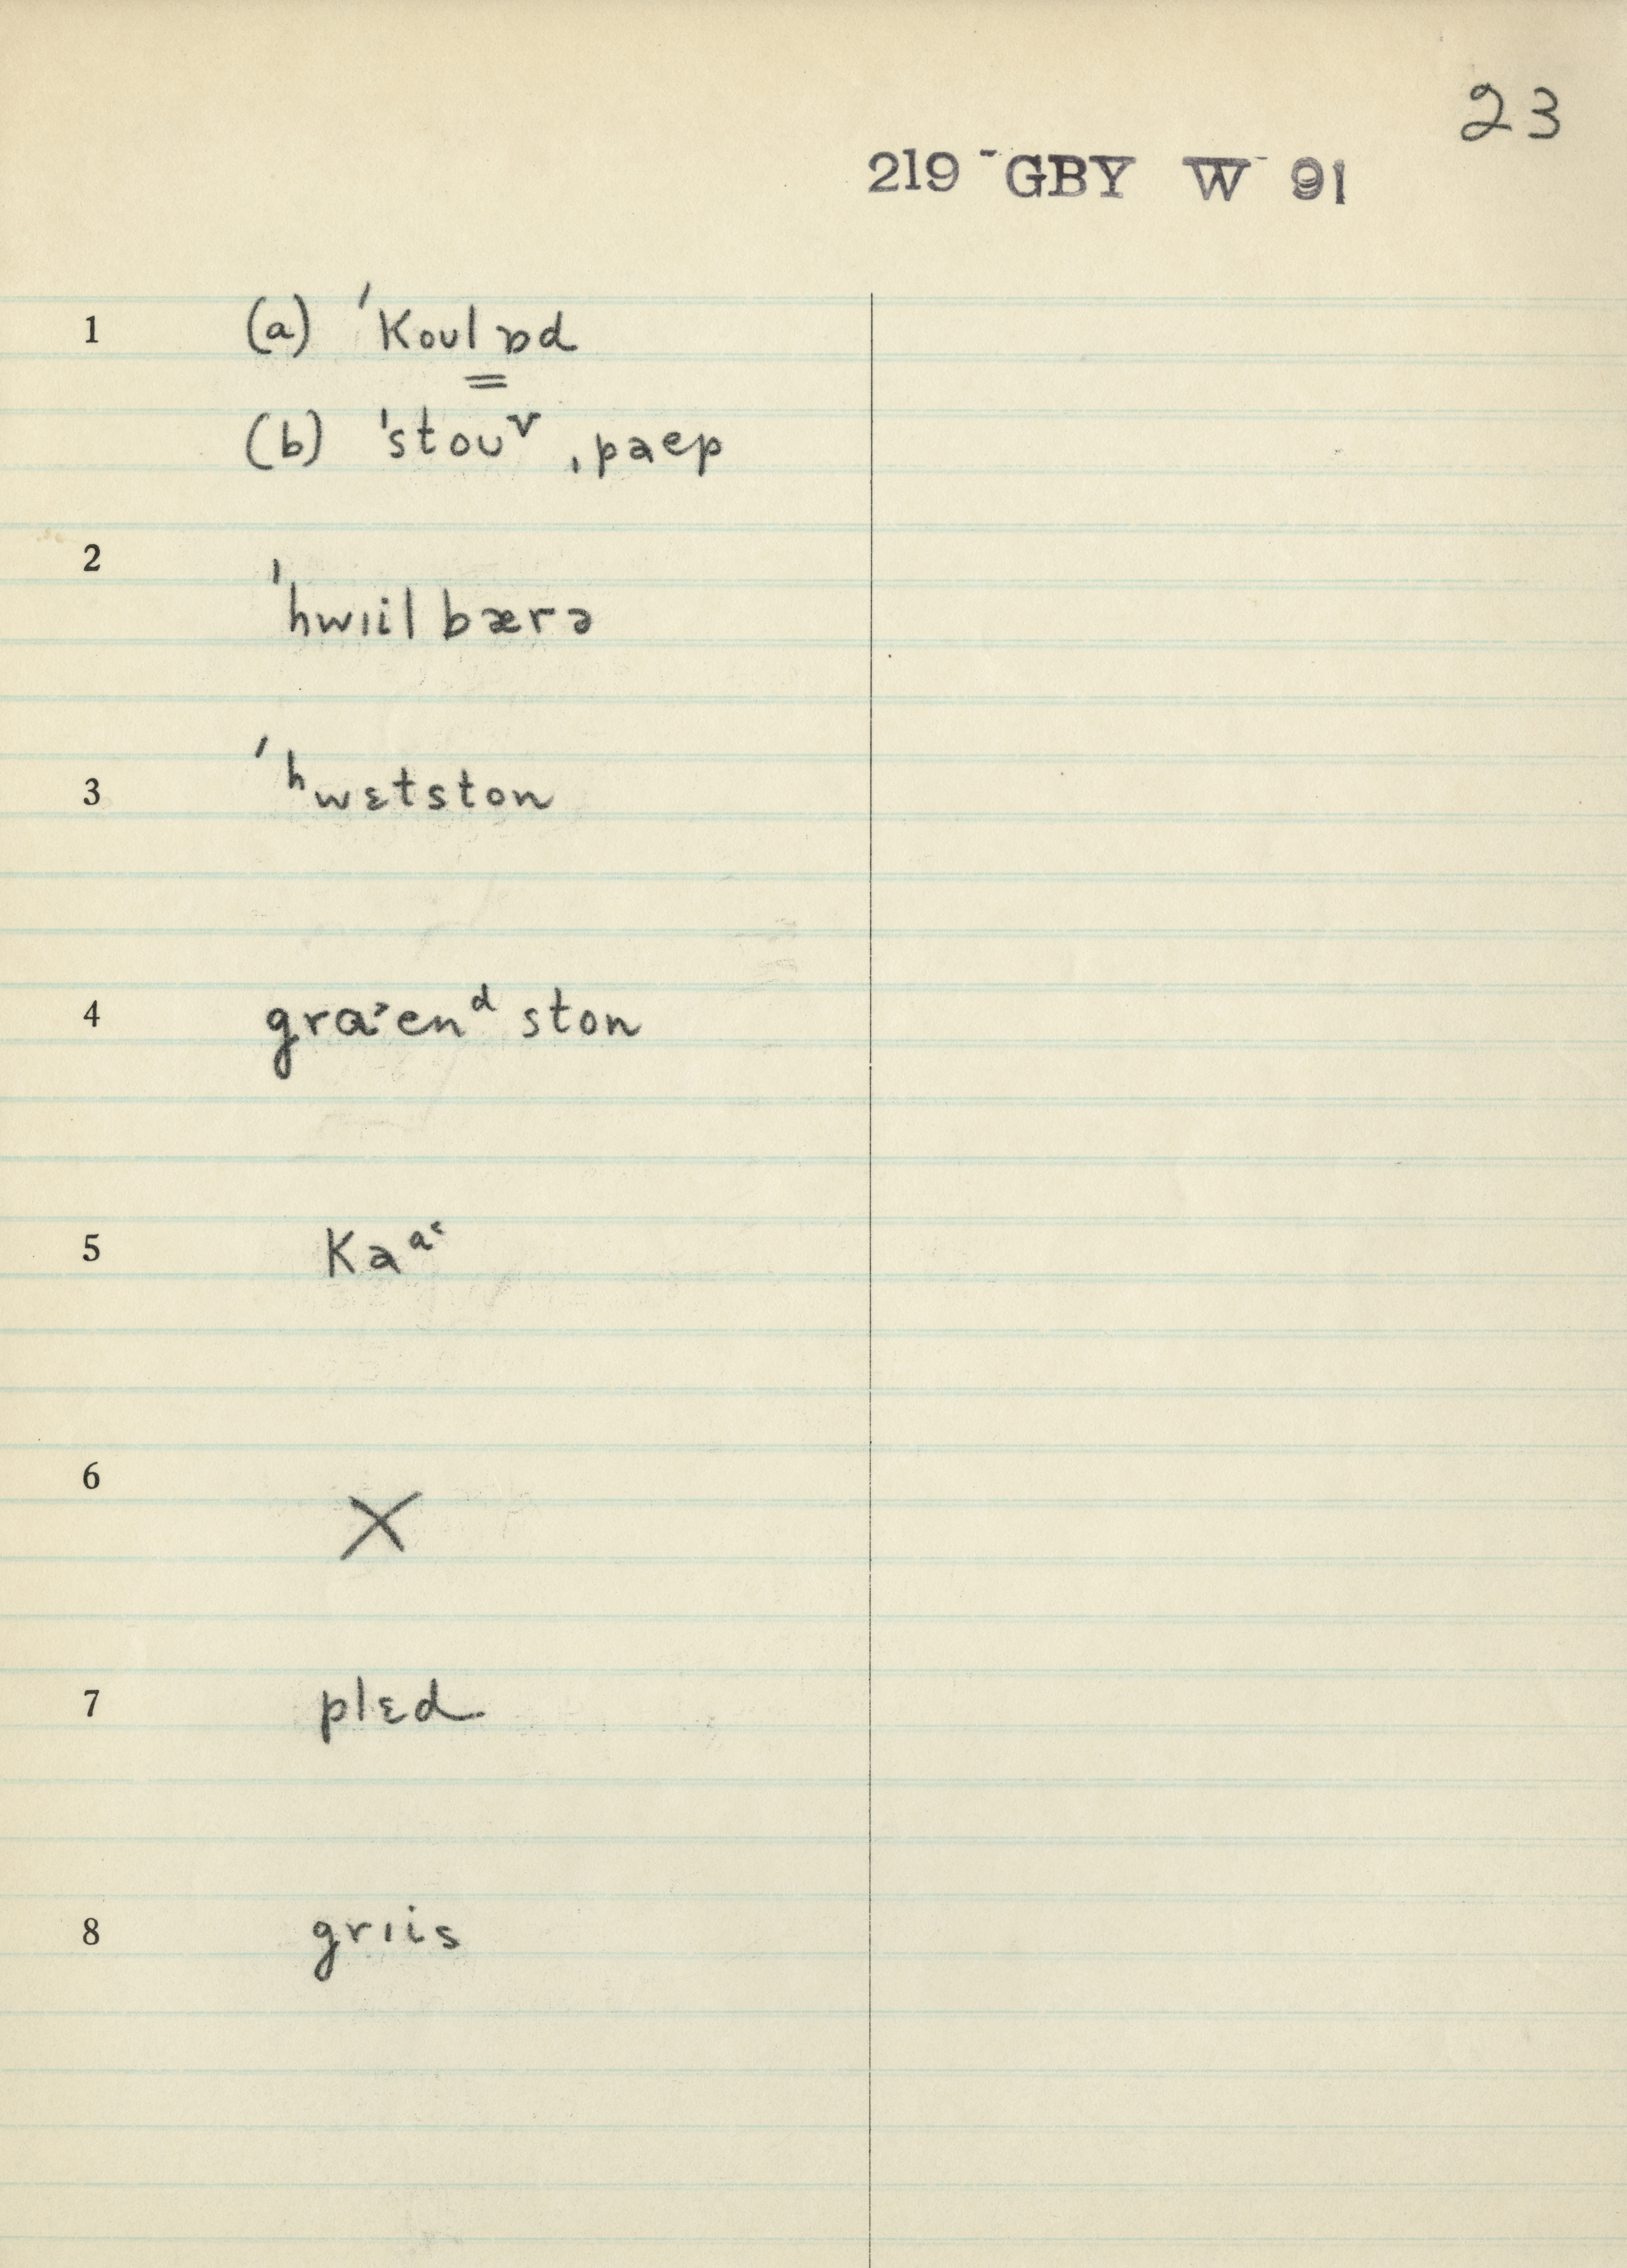 23
219 - GBY W - 91
1 (a) ˈkoulɒd
(b) ˈstouᵛ ˌpaep
2 ˈhwɪilbærə
3 ˈʰwɛtston
4 graˑenᵈ ston
5 kaᵃ˞
6 X
7 plɛd
8 grɪis